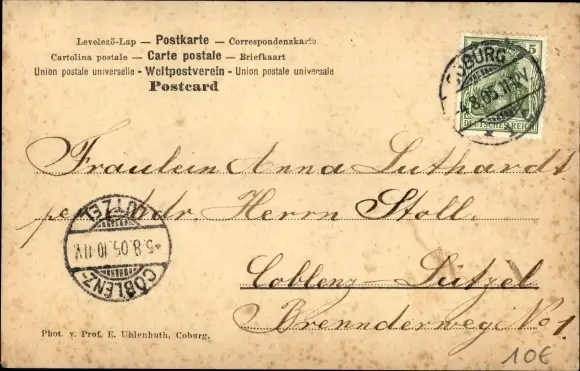 Levelezö-Lap — Postkarte — Correspondenzkarte
Cartolina postale — Carte postale — Briefkaart
Union postale universelle - Weltpostverein - Union postale universale
Postcard
5
COBURG
4.8.05.11-12V.
DEUTSCHES REICH
Fräulein Anna Luthardt
per Adr. Herrn Stoll.
Coblenz-Lützel
Brennderweg No 1.
COBLENZ-
5.8.05.10-11V.
LÜTZEL
Phot. v. Prof. E. Uhlenhuth, Coburg.
10€